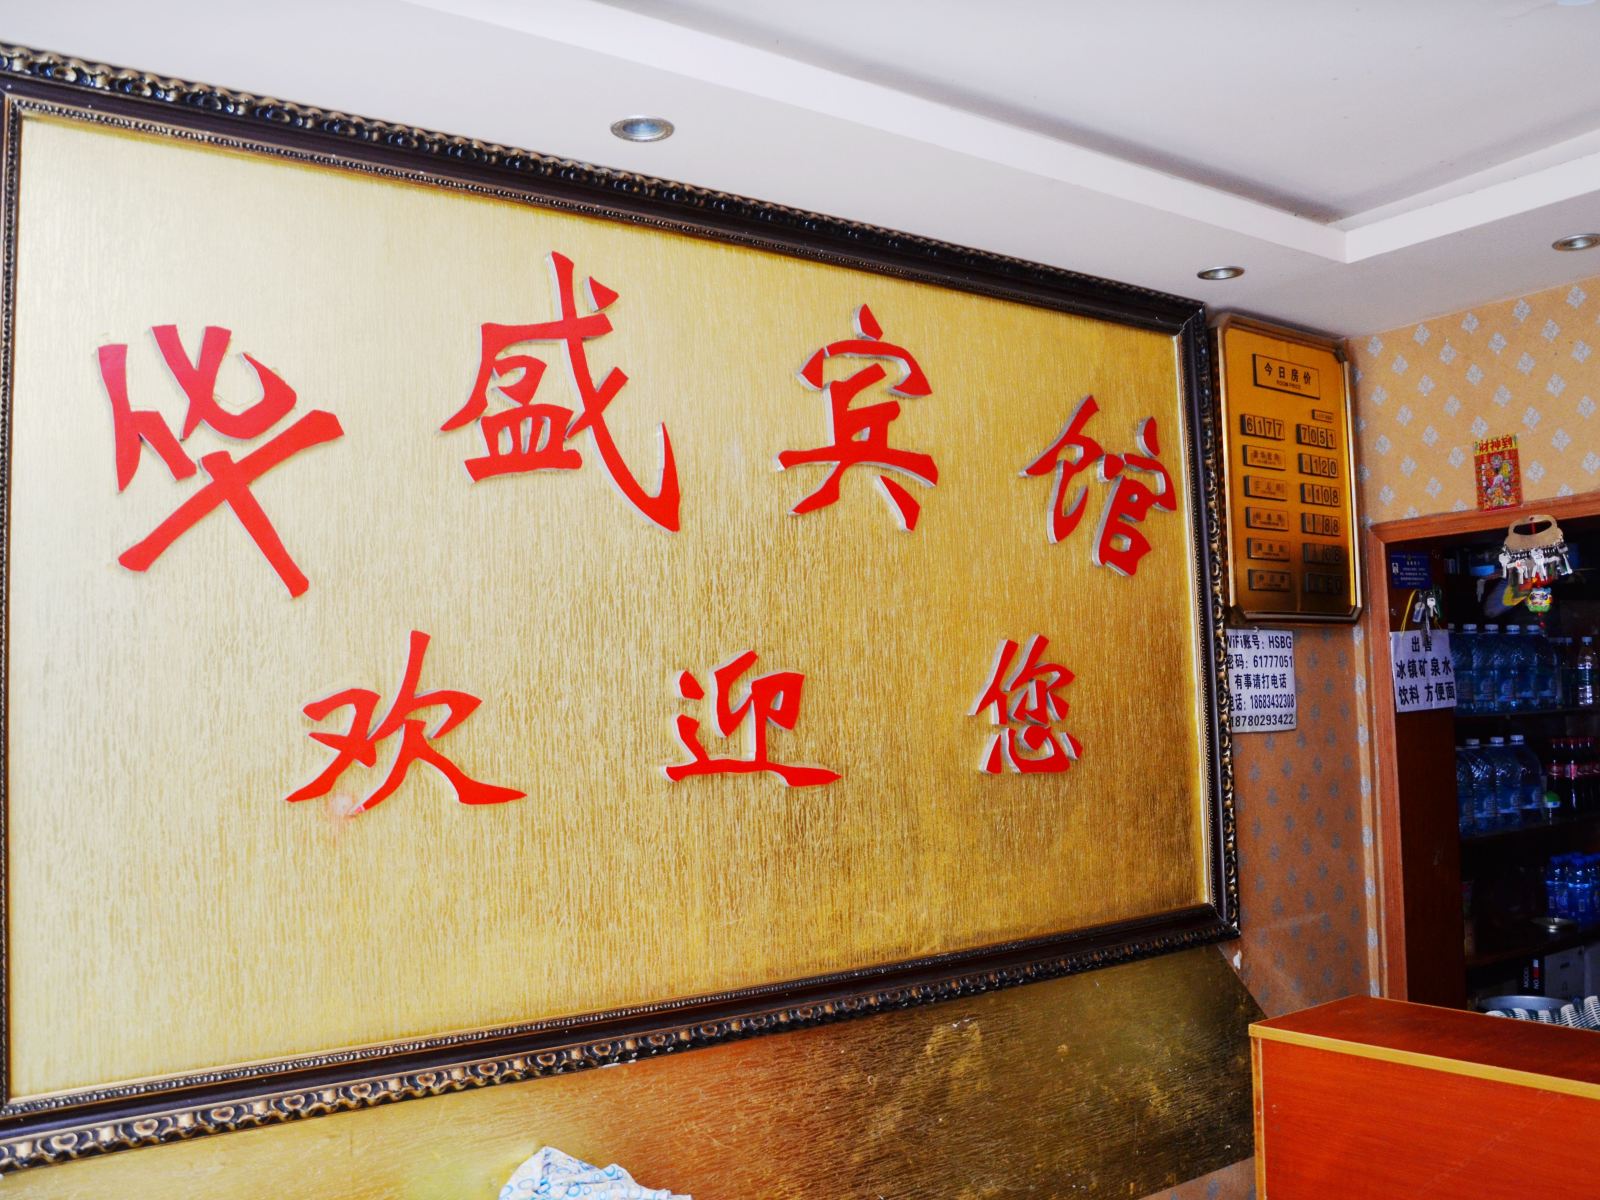 华盛宾馆
欢迎您
今日房价
ROOM PRICE
6177 7051
120
108
88
WiFi账号: HSBG
密码: 61777051
有事请打电话
电话: 18683432308
18780293422
财神到
出售
冰镇矿泉水
饮料 方便面